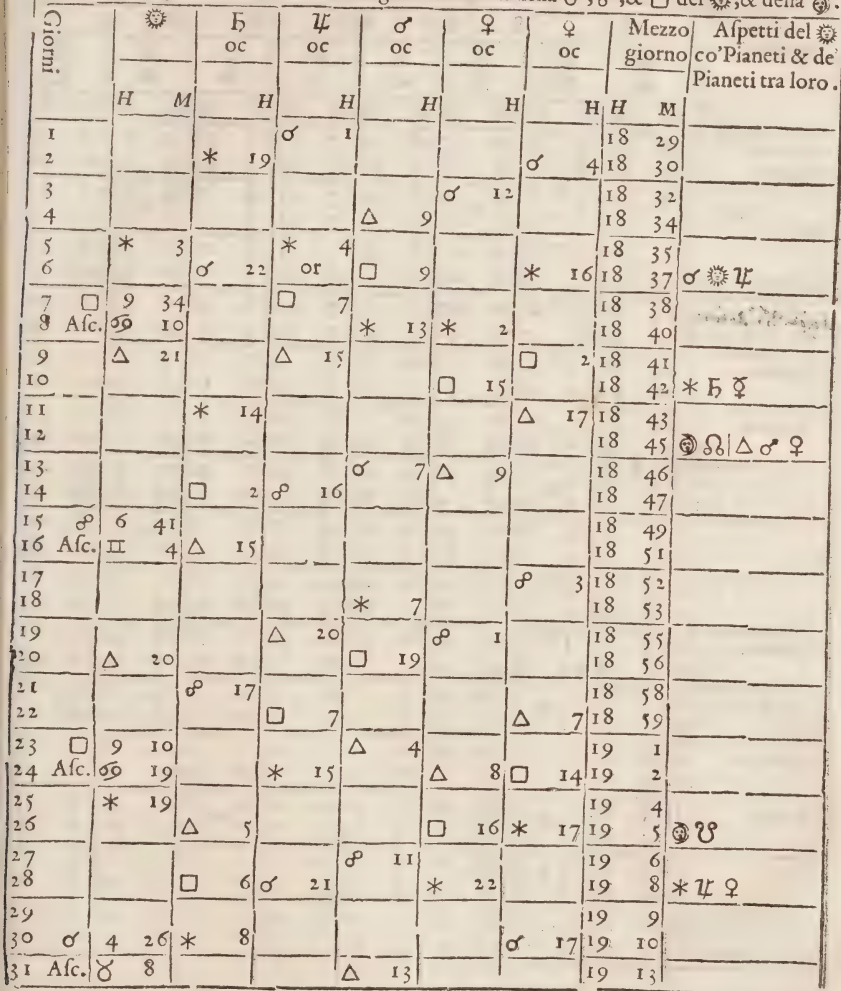 della ☌, ☍, & □ del ☉, & della ☽.
Giorni ☉ ♄ ♃ ♂ ♀ ♀ Mezzo Aſpetti del ☉
oc oc oc oc oc giorno co'Pianeti & de'
Pianeti tra loro.
H M H H H H H H M
1 ☌ 1 18 29
2 * 19 ☌ 4 18 30
3 ☌ 12 18 32
4 △ 9 18 34
5 * 3 * 4 18 35
6 ☌ 22 or □ 9 * 16 18 37 ☌ ☉ ♃
7 □ 9 34 □ 7 18 38
8 Aſc. ♋ 10 * 13 * 2 18 40
9 △ 21 △ 15 □ 2 18 41
10 □ 15 18 42 * ♄ ☿
11 * 14 △ 17 18 43
12 18 45 ☽ ☊ | △ ♂ ♀
13 ☌ 7 △ 9 18 46
14 □ 2 ☍ 16 18 47
15 ☍ 6 41 18 49
16 Aſc. ♊ 4 △ 15 18 51
17 ☍ 3 18 52
18 * 7 18 53
19 △ 20 ☍ 1 18 55
20 △ 20 □ 19 18 56
21 ☍ 17 18 58
22 □ 7 △ 7 18 59
23 □ 9 10 △ 4 19 1
24 Aſc. ♋ 19 * 15 △ 8 □ 14 19 2
25 * 19 19 4
26 △ 5 □ 16 * 17 19 5 ☽ ☋
27 ☍ 11 19 6
28 □ 6 ☌ 21 * 22 19 8 * ♃ ♀
29 19 9
30 ☌ 4 26 * 8 ☌ 17 19 10
31 Aſc. ♉ 8 △ 13 19 13